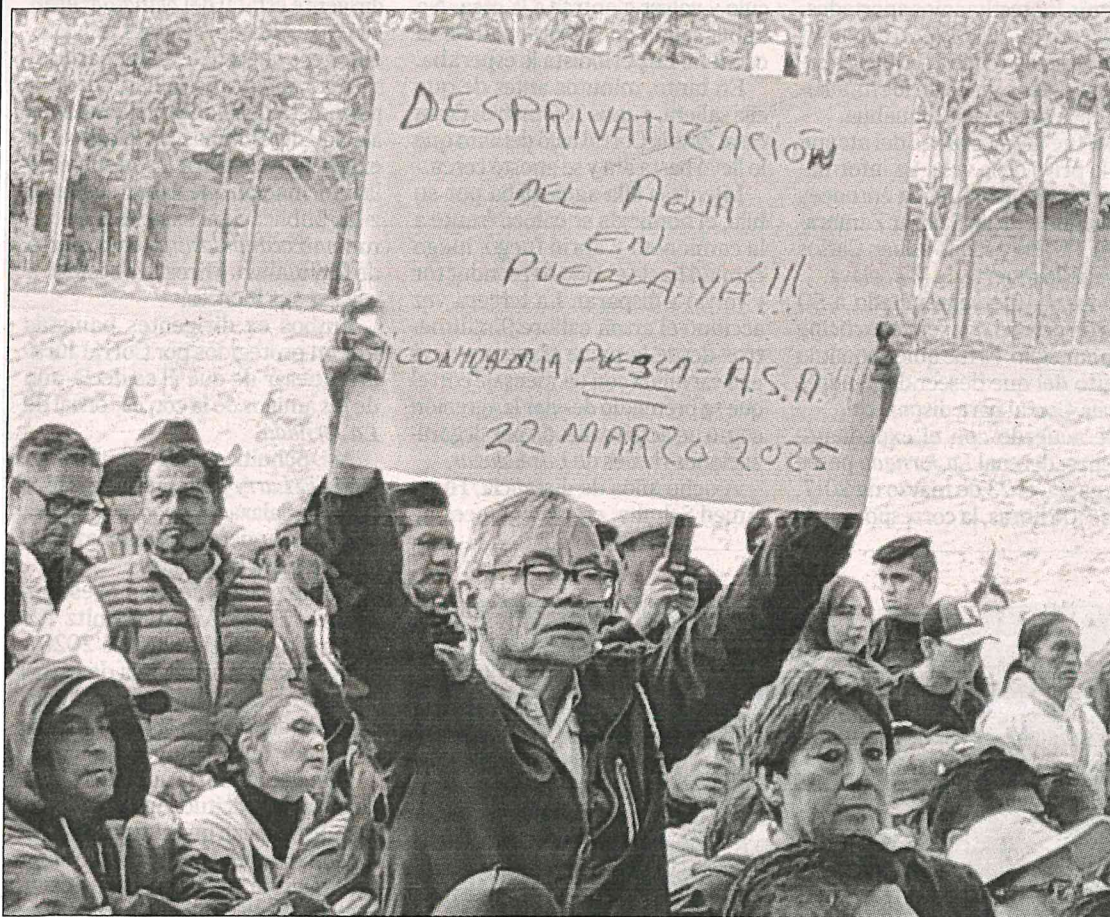 DESPRIVATIZACIÓN
DEL AGUA
EN
PUEBLA. YÁ!!!
CONTRALORIA PUEBLA - A.S.A.!!!!
22 MARZO 2025